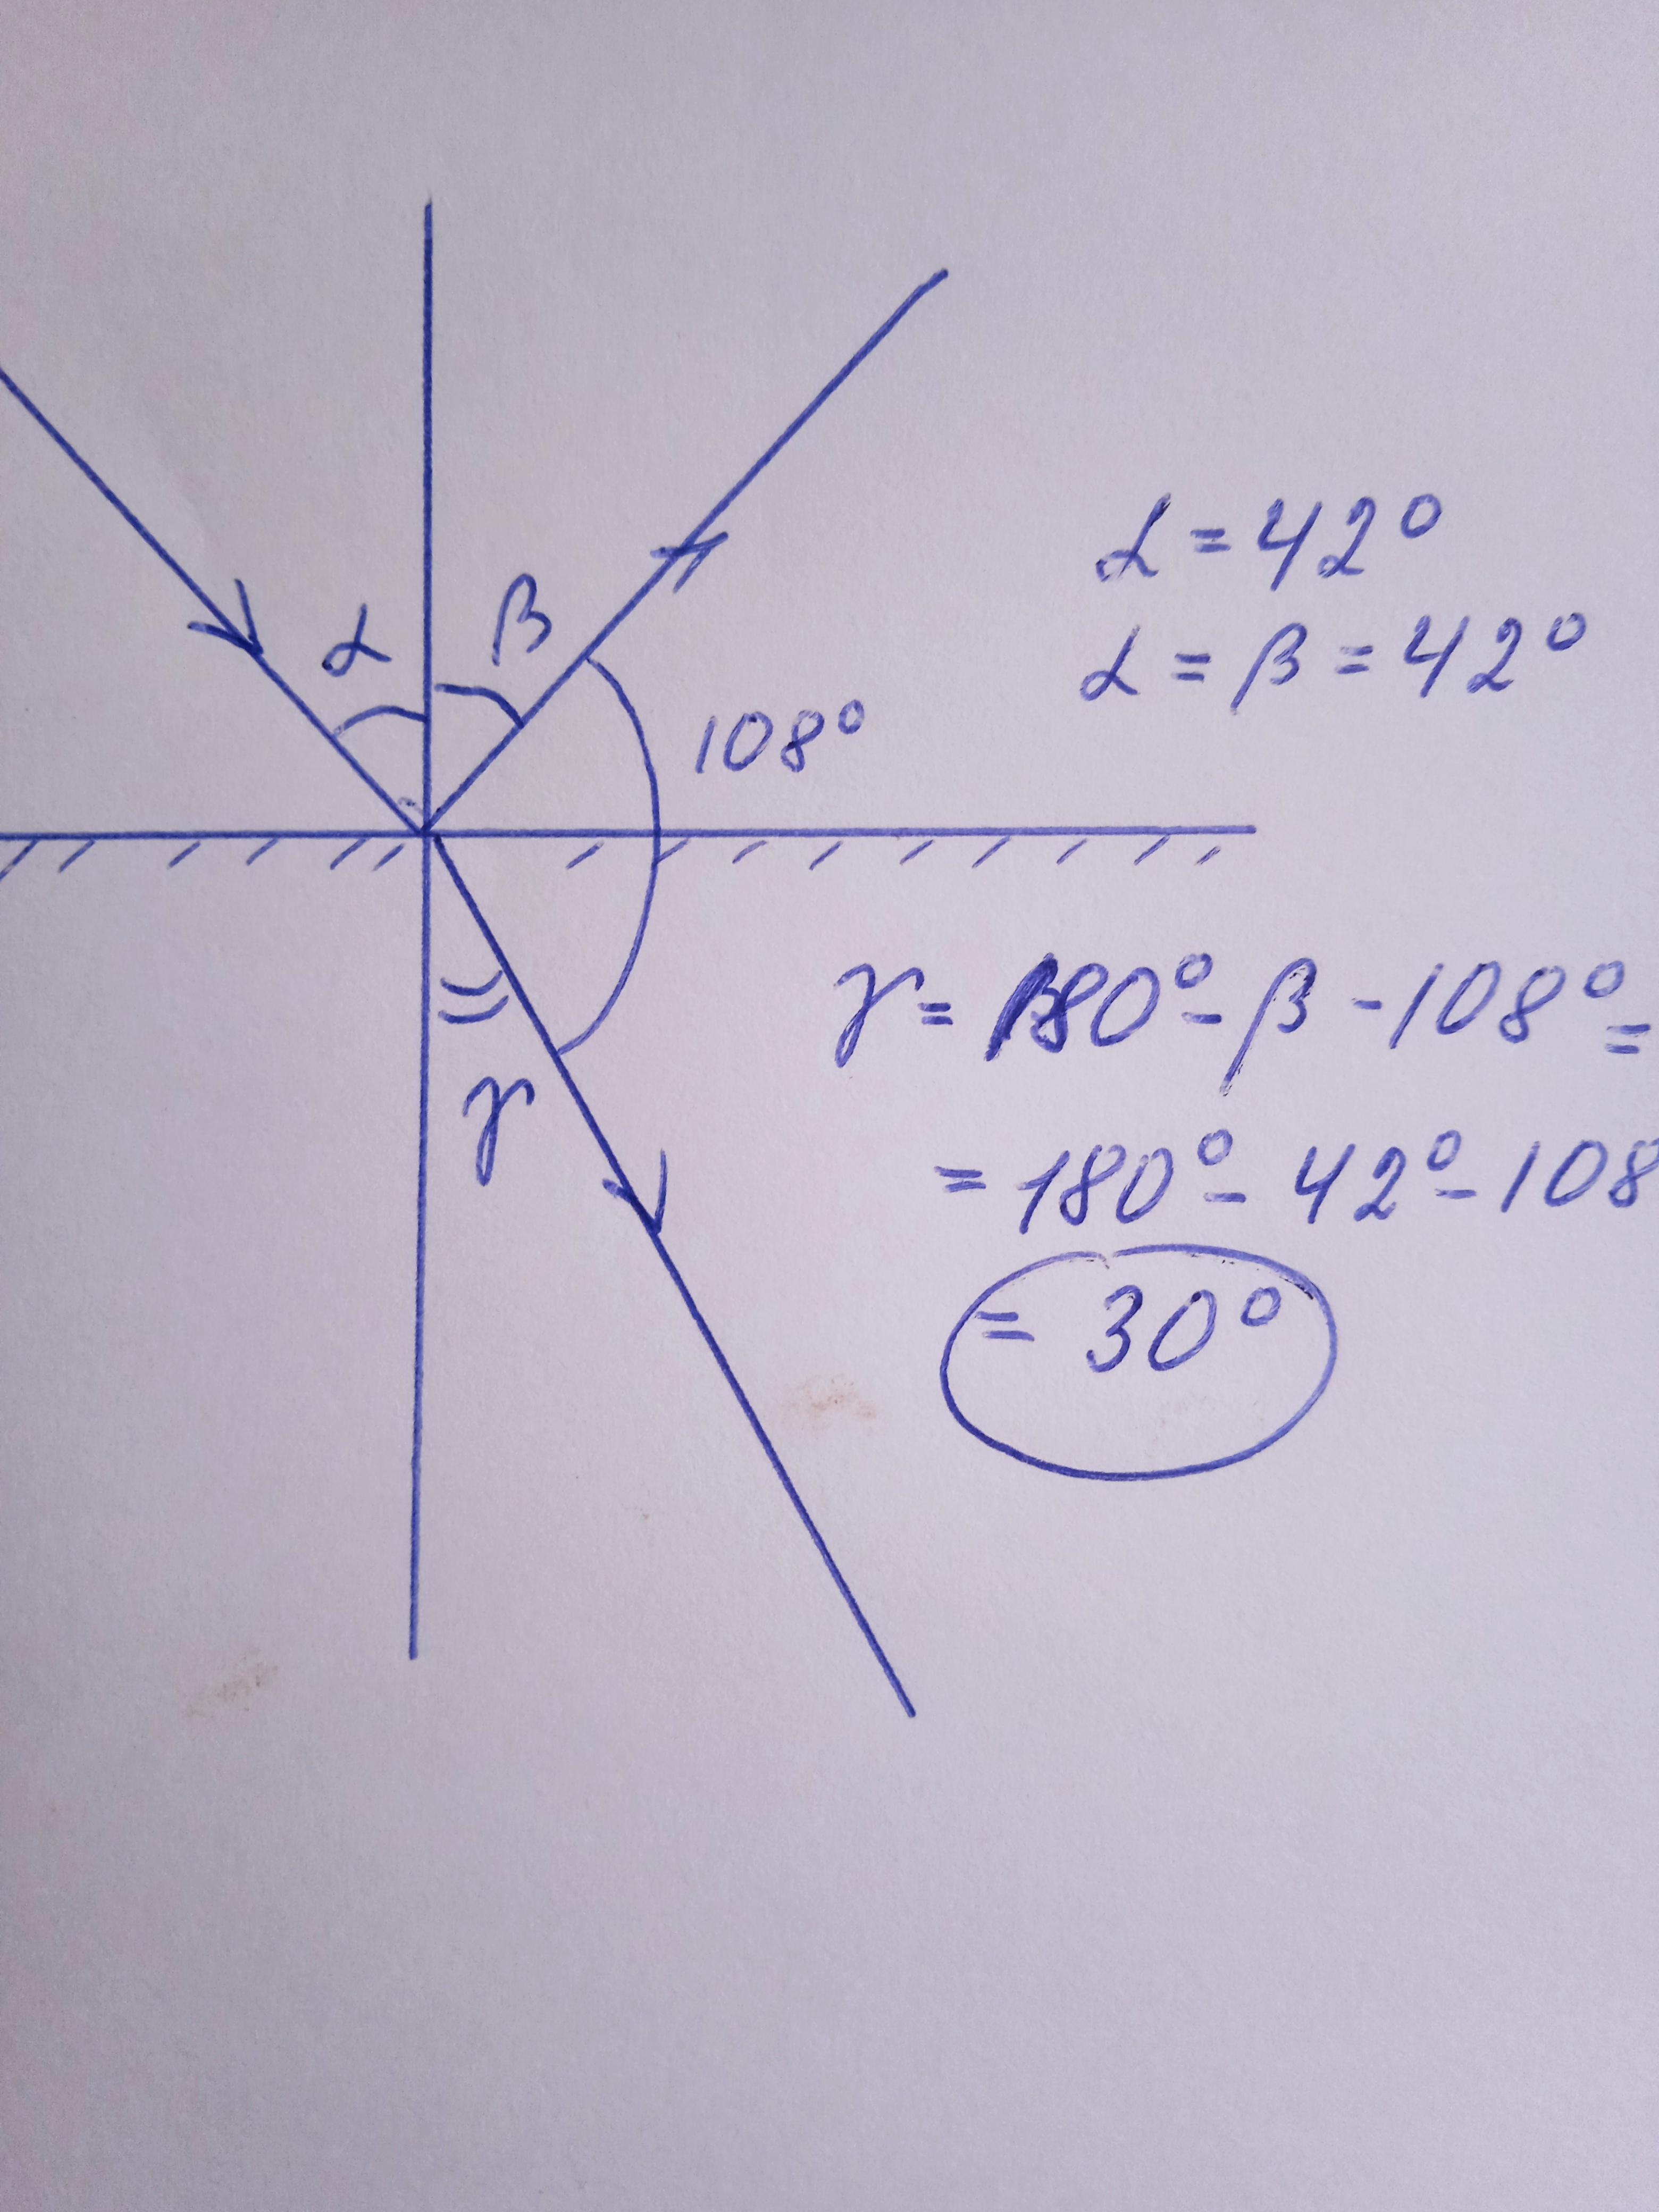 α
β
108°
α = 42°
α = β = 42°
γ
γ = 180° - β - 108° =
= 180° - 42° - 108
= 30°